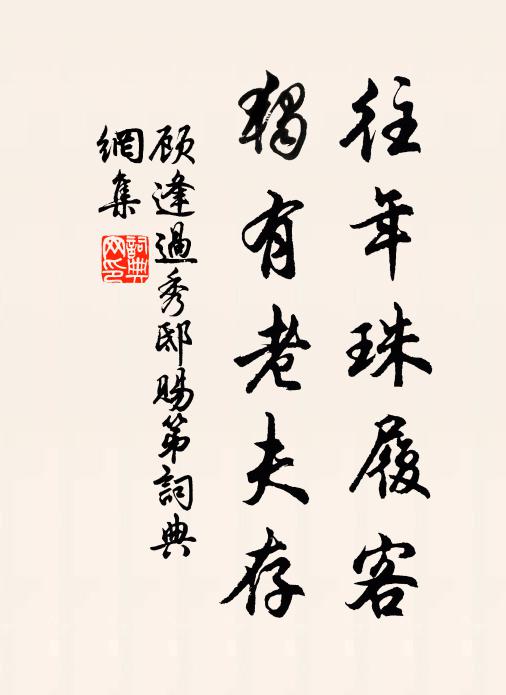 往年珠履客
獨有老夫存
顾逢過秀邸賜第詞典
網集
詞典
网印